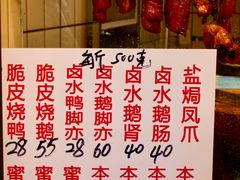 每斤 500克
脆皮烧鸭 28
脆皮烧鹅 55
卤水鸭脚亦 28
卤水鹅脚亦 60
卤水鹅肾 40
卤水鹅肠 40
盐焗凤爪
蜜
蜜
本
本
本